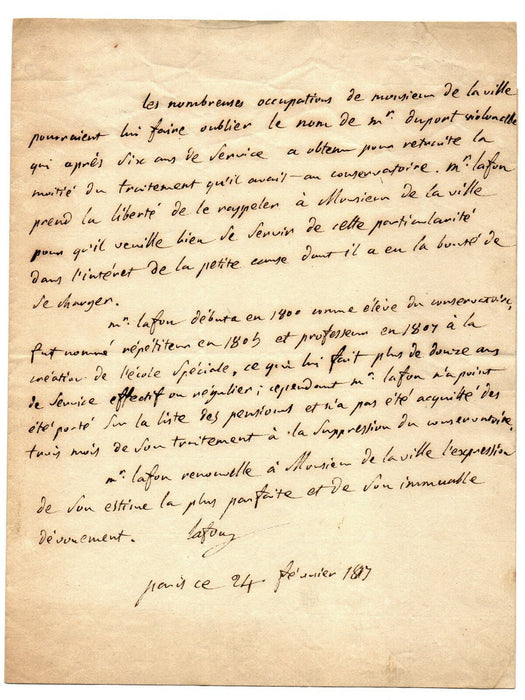 les nombreuses occupations de monsieur de la ville
pourraient lui faire oublier le nom de mr. duport violoncelle
qui après six ans de service a obtenu pour retraite la
moitié du traitement qu'il avait au conservatoire. mr. lafon
prend la liberté de le rappeler à Monsieur de la ville
pour qu'il veuille bien se servir de cette particularité
dans l'intéret de la petite cause dont il a eu la bonté de
se charger.
mr. lafon débuta en 1800 comme élève du conservatoire,
fut nommé répétiteur en 1805 et professeur en 1807 à la
création de l'école spéciale, ce qui lui fait plus de douze ans
de service effectif ou régulier; cependant mr. lafon n'a point
été porté sur la liste des pensions et n'a pas été acquitté des
trois mois de son traitement à la suppression du conservatoire.
mr. lafon renouvelle à Monsieur de la ville l'expression
de son estime la plus parfaite et de son immuable
dévouement. lafon
paris ce 24 février 1817